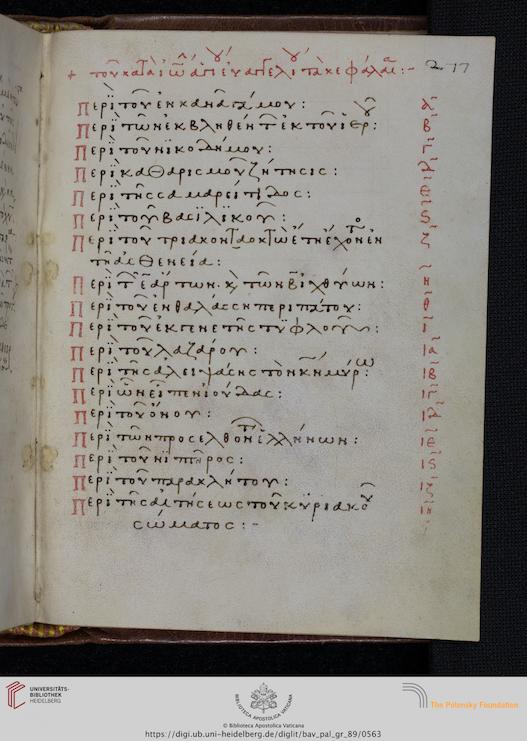 + τοῦ κατὰ ἰω ἁγι ευαγγελι τὰ κεφάλαι :- 277
Περὶ τοῦ ἐν κανᾶ γάμου : α
Περὶ τῶν ἐκβληθέντ ἐκ τοῦ ἱερ : β
Περὶ τοῦ νικοδήμου : γ
Περὶ καθαρισμοῦ ζήτησις : δ
Περὶ τῆς σαμαρείτιδος : ε
Περὶ τοῦ βασιλικοῦ : ς
Περὶ τοῦ τριακονταοκτὼ ἔτη ἔχοντο ἐν ζ
τῆ ἀσθενεία :
Περὶ τ ε ἄρτων κ τῶν β ἰχθύων : η
Περὶ τοῦ ἐν θαλάσση περιπάτου : θ
Περὶ τοῦ ἐκ γενετῆς τυφλοῦ ι
Περὶ τοῦ λαζάρου : ια
Περὶ τῆς ἀλειψάσης τὸν κν μύρω : ιβ
Περὶ ὧν εἶπεν ἰούδας : ιγ
Περὶ τοῦ ὄνου : ιδ
Περὶ τῶν προσελθόντ ἑλλήνων : ιε
Περὶ τοῦ νιπτῆρος : ις
Περὶ τοῦ παρακλήτου : ιζ
Περὶ τῆς αἰτήσεως τοῦ κυριακοῦ ιη
σώματος :-
UNIVERSITÄTS-
BIBLIOTHEK
HEIDELBERG
BIBLIOTECA APOSTOLICA VATICANA
The Polonsky Foundation
© Biblioteca Apostolica Vaticana
https://digi.ub.uni-heidelberg.de/diglit/bav_pal_gr_89/0563